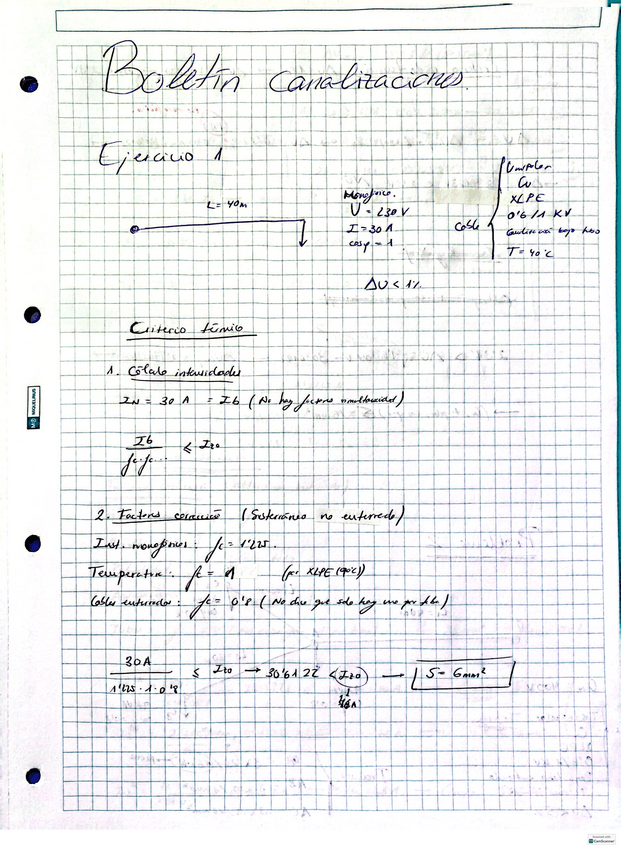 Boletín canalizaciones.
Ejercicio 1
L = 40m
Monofásico.
U = 230 V
I = 30 A
cosφ = 1
ΔU < 1%
Cable
Unipolar
Cu
XLPE
0'6/1 KV
Canalización bajo tubo
T = 40°C
Criterio térmico
1. Cálculo intensidades
IN = 30 A = Ib (No hay factores simultaneidad)
Ib / fc·fc... ⩽ Izo
2. Factores corrección (Subterráneo no enterrado)
Inst. monofásicas: fc = 1'225.
Temperatura: fc = 1 (por XLPE (90°C))
Cables enterrados: fc = 0'8 (No dice que solo hay uno por tubo)
30A / 1'225·1·0'8 ⩽ Izo → 30'6122 < Izo → S = 6mm²
MIQUELRIUS
CamScanner